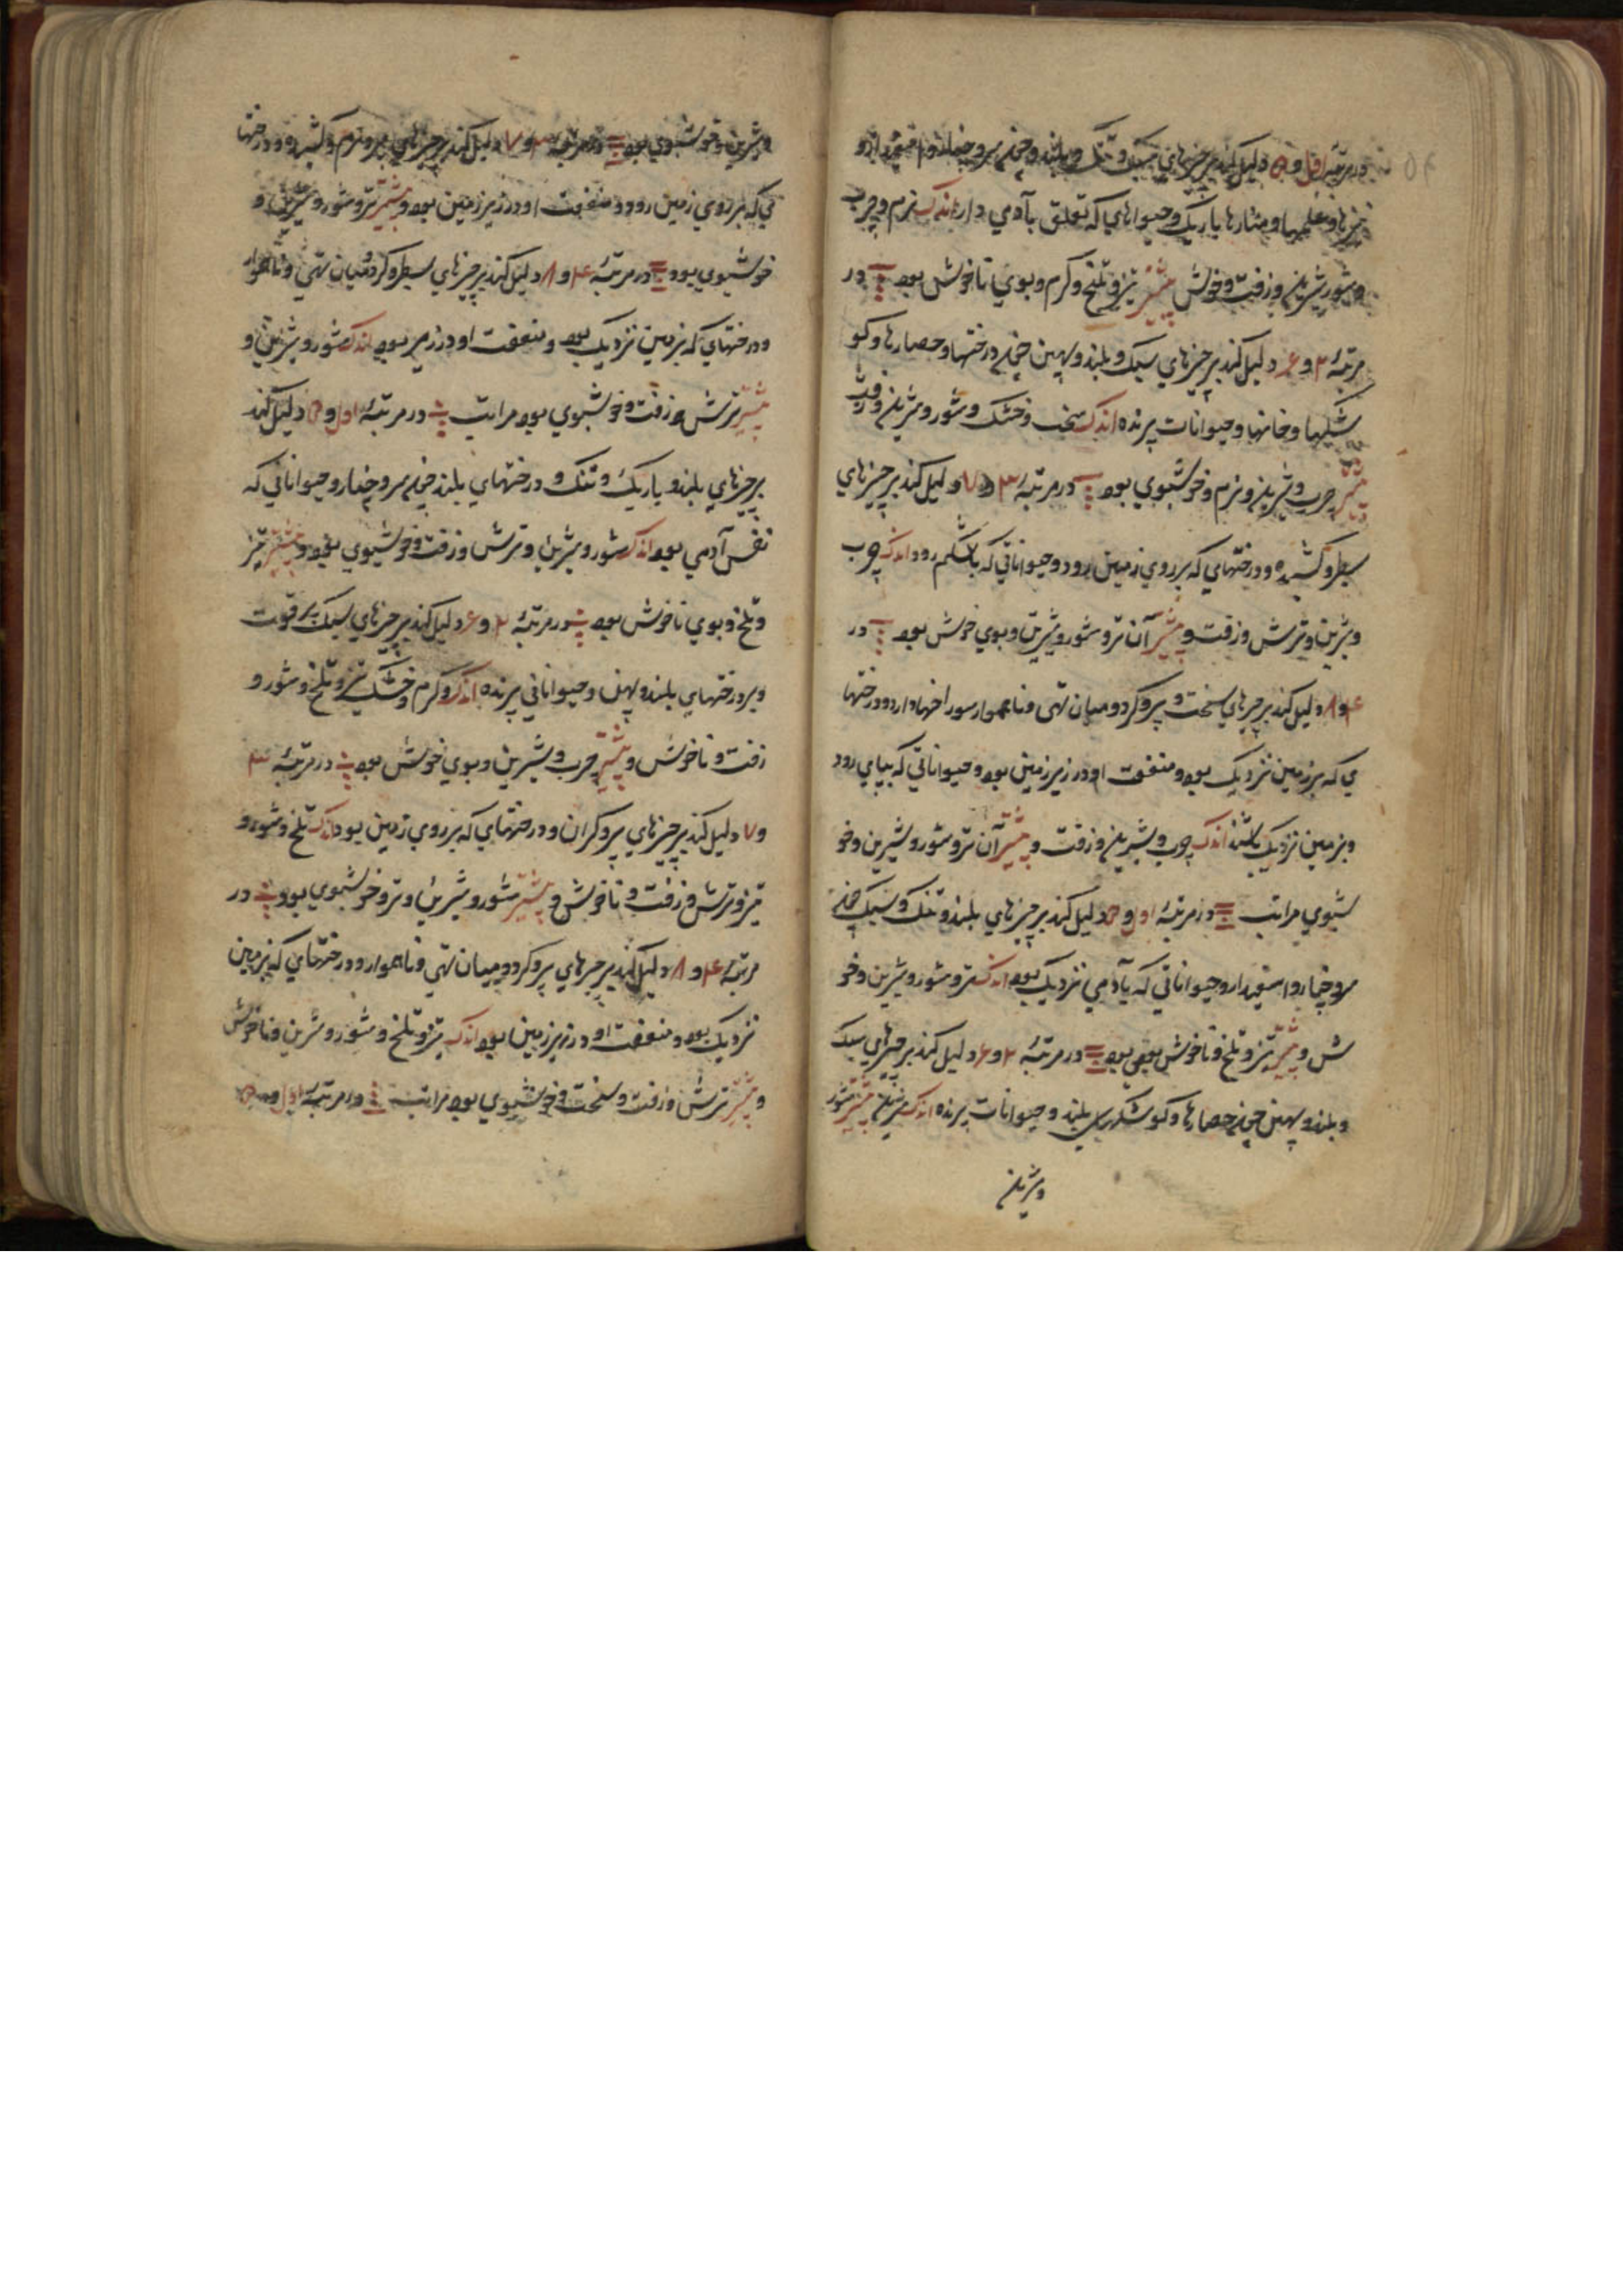 در مرتبهٔ اول و ۵ دلیل کند بر چیزهای سبک و تنک و بلند و چون سرو چنار و اسفیدار و
نیزها و علمها و منارها باریک و حیوانهای که تعلق بآدمی دارد اندک نرم و چرب
و شور شیرین و زفت و خوش بیشتر تیز و تلخ و گرم و بوی ناخوش بود در
مرتبهٔ ۲ و ۶ دلیل کند بر چیزهای سبک و بلند و پهن چون درختها و حصارها و کو
شکها و خانها و حیوانات پرنده اندک سخت و خشک و شور و شیرین و زفت
بیشتر چرب و شیرین و نرم و خوشبوی بود در مرتبهٔ ۳ و ۷ دلیل کند بر چیزهای
سطبر و کشیده و درختهای که بر روی زمین رود و حیواناتی که باشکم رود اندک چرب
و شیرین و ترش و زفت و بیشتر آن تر و شور و شیرین و بوی خوش بود در
۴ و ۸ دلیل کند بر چیزهای سخت و پر و گرد و میان تهی و ناهموار سوراخها دارد و درختها
ی که بر زمین نزدیک بود و منفعت او در زیر زمین بود و حیواناتی که بپای رود
و بزمین نزدیک باشند اندک چرب و شیرین و زفت و بیشتر آن تر و شور و شیرین و خو
شبوی مراتب در مرتبهٔ اول و ۵ دلیل کند بر چیزهای بلند و تنک و سبک چون
سرو چنار و اسفیدار و حیواناتی که بآدمی نزدیک بود اندک تر و شور و شیرین و خو
ش و بیشتر تیز و تلخ و ناخوش بوی بود در مرتبهٔ ۲ و ۶ دلیل کند بر چیزهای سبک
و بلند و پهن چون حصارها و کوشکهای بلند و حیوانات پرنده اندک شیرین بیشتر شور
و شیرین
و شیرین و خوشبوی بود در مرتبهٔ ۳ و ۷ دلیل کند بر چیزهای پر و نرم و کشیده و درختها
ئی که بر روی زمین رود و منفعت او در زیر زمین بود و بیشتر تر و شور و شیرین و
خوشبوی بود در مرتبهٔ ۴ و ۸ دلیل کند بر چیزهای سطبر و گرد و میان تهی و ناهموار
و درختهای که بزمین نزدیک بود و منفعت او در زیر بود اندک شور و شیرین و
بیشتر ترش و زفت و خوشبوی بود مراتب در مرتبهٔ اول و ۵ دلیل کند
بر چیزهای بلند و باریک و تنک و درختهای بلند چون سرو چنار و حیواناتی که
نفس آدمی بود اندک شور و شیرین و ترش و زفت و خوشبوی بود و بیشتر تیز
و تلخ و بوی ناخوش بود در مرتبهٔ ۲ و ۶ دلیل کند بر چیزهای سبک پر قوت
و بر درختهای بلند و پهن و حیواناتی پرنده اندک و گرم و خشک تیز و تلخ و شور و
زفت و ناخوش و بیشتر چرب و شیرین و بوی خوش بود در مرتبهٔ ۳
و ۷ دلیل کند بر چیزهای پر و گران و درختهای که بر روی زمین بود اندک تلخ و شور و
تیز و ترش و زفت و ناخوش و بیشتر شور و شیرین و تر و خوشبوی بود در
مرتبهٔ ۴ و ۸ دلیل کند بر چیزهای پر و گرد و میان تهی و ناهموار و درختهای که بزمین
نزدیک بود و منفعت او در زیر زمین بود اندک تیز و تلخ و شور و شیرین و ناخوش
و بیشتر ترش و زفت و سخت و خوشبوی بود مراتب در مرتبهٔ اول و ۵